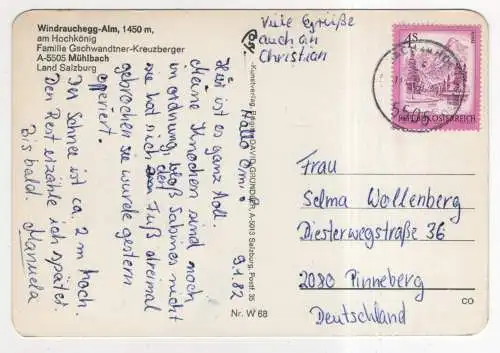 Windrauchegg-Alm, 1450 m,
am Hochkönig
Familie Gschwandtner-Kreuzberger
A-5505 Mühlbach
Land Salzburg
Viele Grüße
auch an
Christian
9.1.82
Hallo Omi!
Hier ist es ganz toll.
Meine Knochen sind noch
in Ordnung, bloß Sabines nicht
sie hat sich den Fuß dreimal
gebrochen sie wurde gestern
operiert.
Der Schnee ist ca. 2 m hoch.
Den Rest erzähle ich später.
Bis bald. Manuela
A-5013 Salzburg, Postf. 35
Nr. W 68
4 S
REPUBLIK ÖSTERREICH
5505
Frau
Selma Wollenberg
Diesterwegstraße 36
2080 Pinneberg
Deutschland
CO